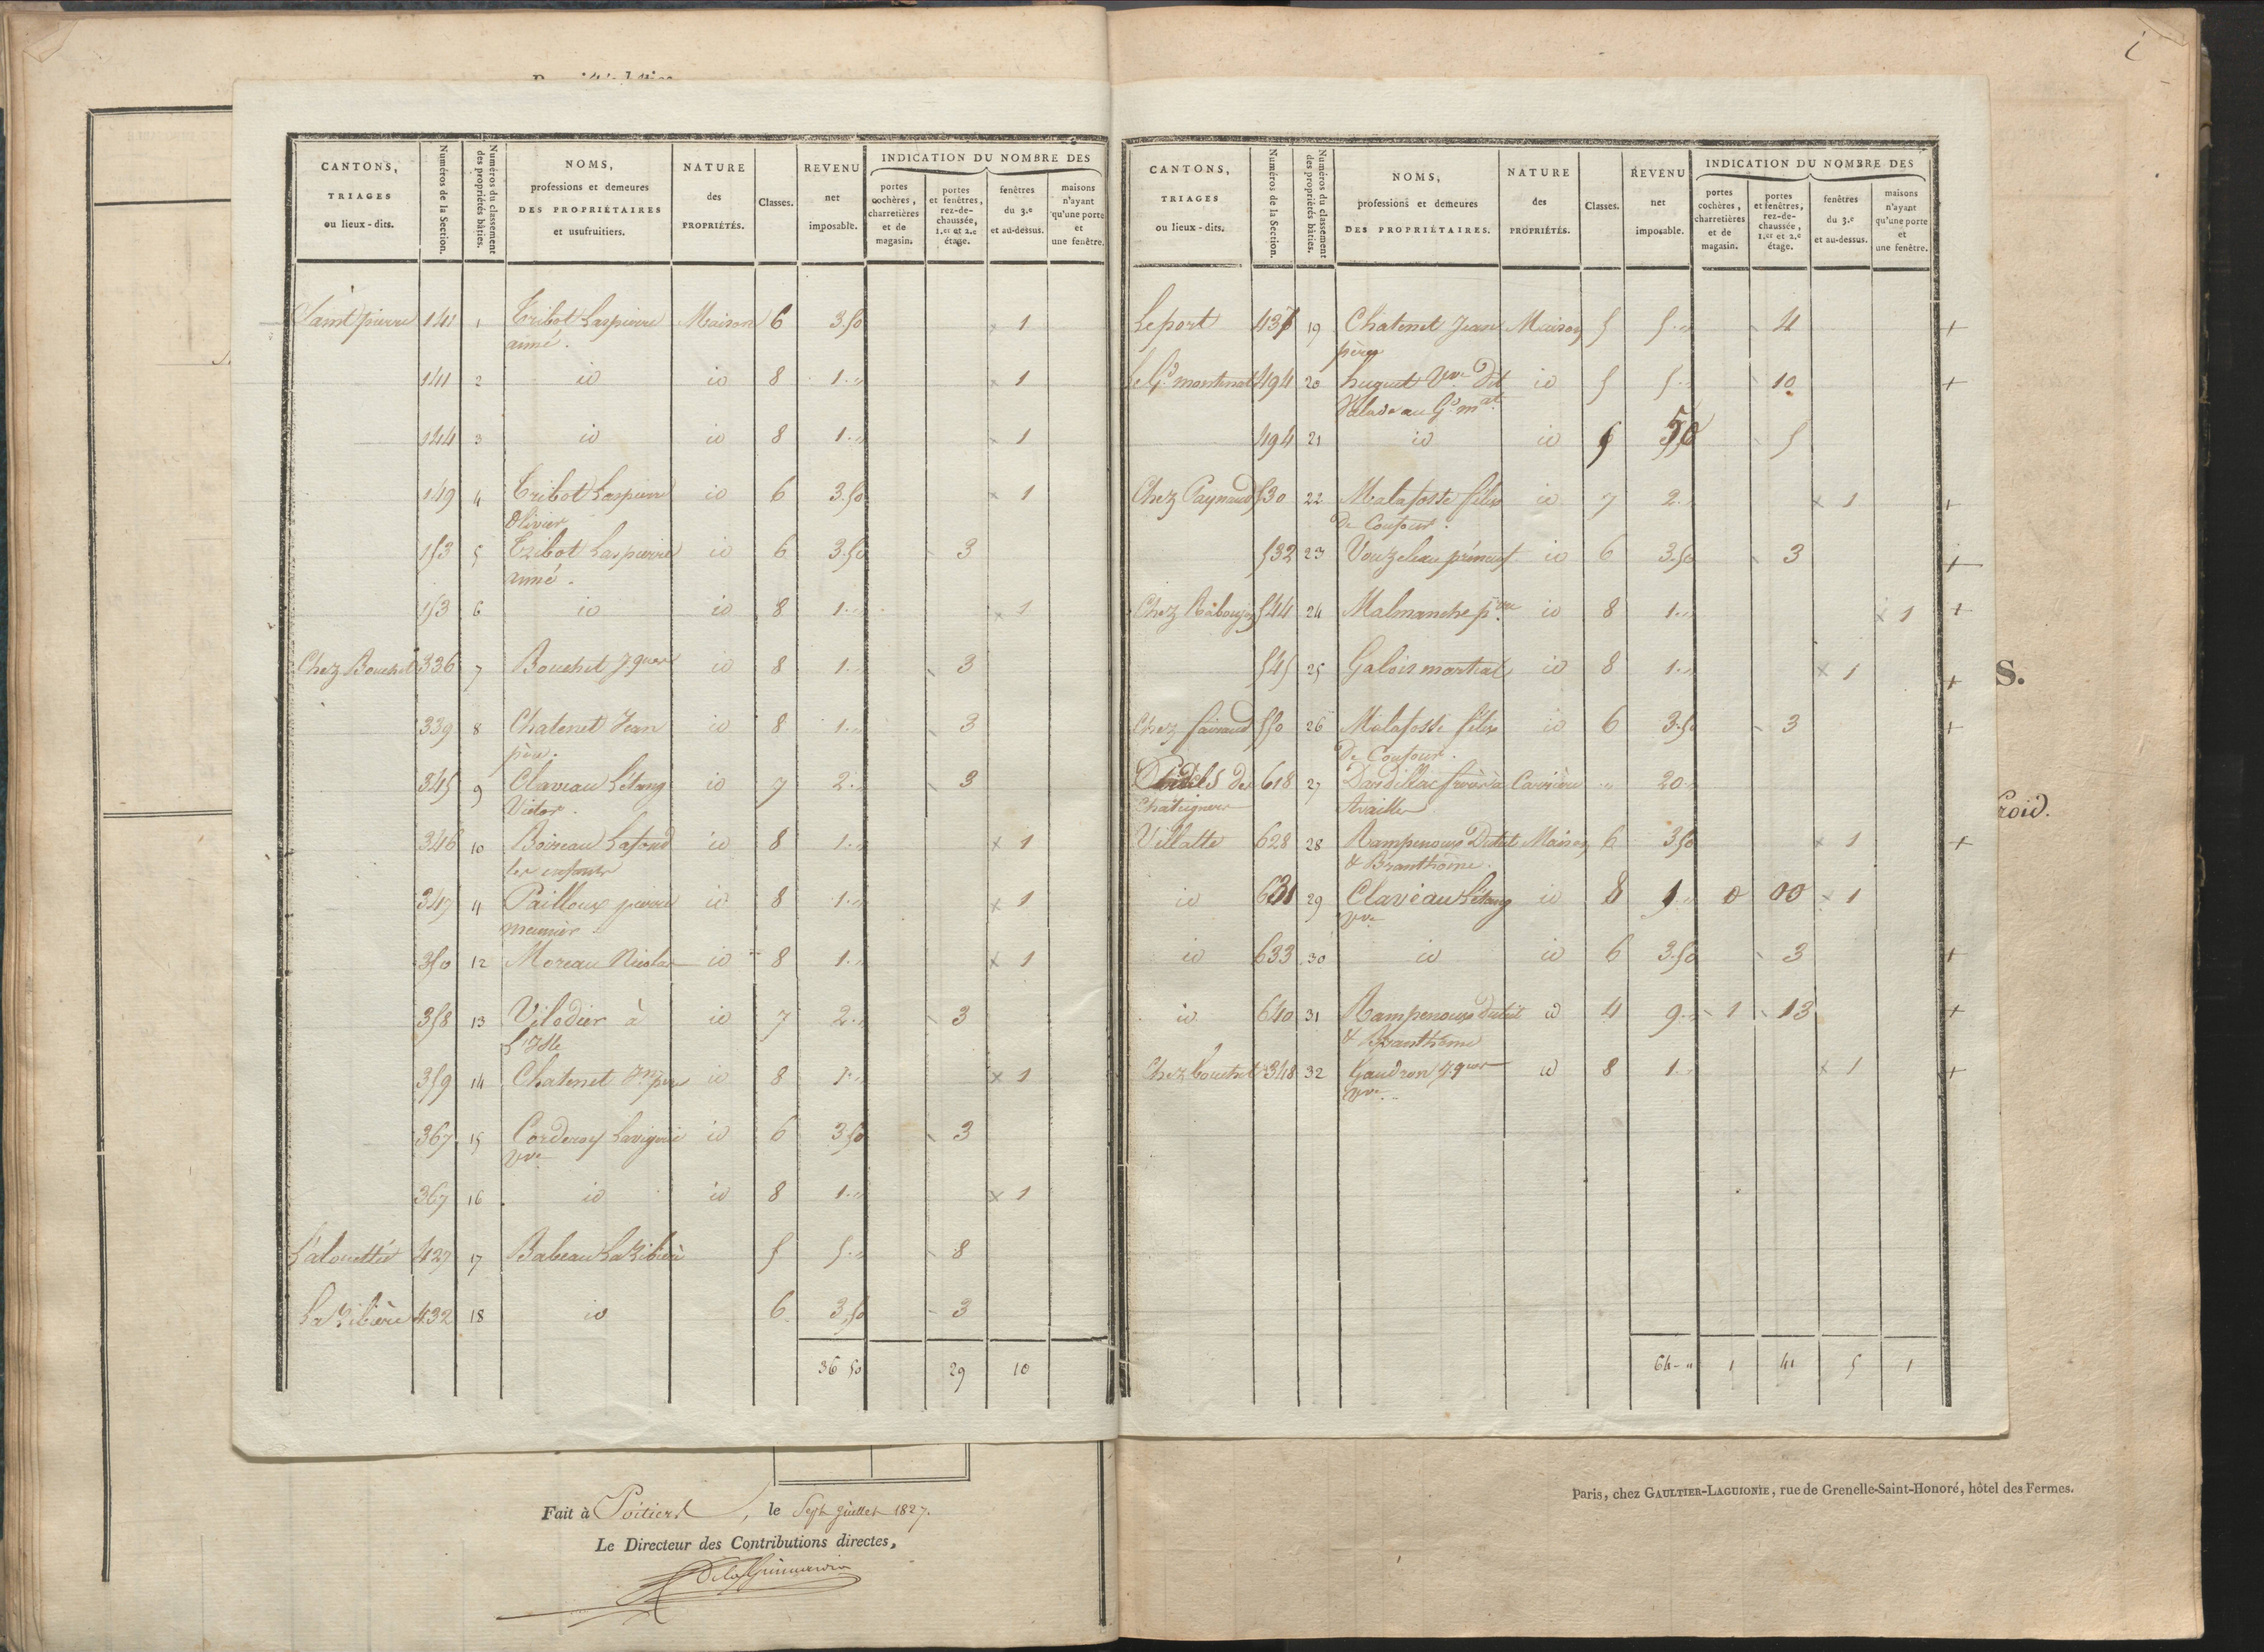 CANTONS, TRIAGES ou lieux-dits. Numéros de la Section. Numéros du classement des propriétés bâties. NOMS, professions et demeures DES PROPRIÉTAIRES et usufruitiers. NATURE des PROPRIÉTÉS. Classes. REVENU net imposable. INDICATION DU NOMBRE DES portes cochères, charretières et de magasin. portes et fenêtres, rez-de-chaussée, 1.er et 2.e étage. fenêtres du 3.e et au-dessus. maisons n'ayant qu'une porte et une fenêtre.
Saint pierre 141 1 Tribot Laspierre Maison 6 3.50 x 1
aimé.
141 2 id id 8 1.„ x 1
144 3 id id 8 1.„ x 1
149 4 Tribot Laspierre id 6 3.50 x 1
Olivier
153 5 Tribot Laspierre id 6 3.50 3
aimé.
153 6 id id 8 1.„ x 1
Chez Bouchet 336 7 Bouchet Jques id 8 1.„ 3
339 8 Chatenet Jean id 8 1.„ 3
père.
345 9 Claveau Létang id 7 2.„ 3
Victor.
346 10 Boireau Lafond id 8 1.„ x 1
les enfans
347 11 Pailloux pierre id 8 1.„ x 1
meunier
350 12 Moreau Nicolas id 8 1.„ x 1
358 13 Vilodier à id 7 2.„ 3
L'Isle
359 14 Chatenet Jn père id 8 1.„ x 1
367 15 Corderoy Lavigerie id 6 3.50 3
Vve
367 16 id id 8 1.„ x 1
L'alouettie 427 17 Babeau La Ribière 5 5.„ 8
La Ribière 432 18 id 6 3.50 3
36 50 29 10
CANTONS, TRIAGES ou lieux-dits. Numéros de la Section. Numéros du classement des propriétés bâties. NOMS, professions et demeures DES PROPRIÉTAIRES. NATURE des PROPRIÉTÉS. Classes. REVENU net imposable. INDICATION DU NOMBRE DES portes cochères, charretières et de magasin. portes et fenêtres, rez-de-chaussée, 1.er et 2.e étage. fenêtres du 3.e et au-dessus. maisons n'ayant qu'une porte et une fenêtre.
Le port 437 19 Chatenet Jean Maison 5 5.„ 4 +
père
Le Gd montenat 494 20 huguet Vve dit id 5 5.„ 10 +
au Gd mat.
494 21 id id 50 5
Chez Paynaud 530 22 Malafosse félix id 7 2.„ x 1 +
de Confour.
532 23 Vouzeleau id 6 3.50 3 +
Chez 544 24 Malmanche pre id 8 1.„ x 1 +
545 25 Galois martial id 8 1.„ x 1 +
Chez 550 26 Malafosse félix id 6 3.50 3 +
de Confour.
des 618 27 Dandillac frères à Carrière „ 20.„
Chataigners Availles
Villatte 628 28 Rampenoux Dutet Maison 6 3.50 x 1 +
& Branthôme.
id 631 29 Claveau Létang id 8 1.„ 0 00 x 1
Vve
id 633 30 id id 6 3.50 3 +
id 640 31 Rampenoux Dutet id 4 9.„ 1 13 +
& Branthôme
Chez bouchet 348 32 Gaudron Jques id 8 1.„ x 1 +
Vve
64 „ 1 41 5 1
S.
roid.
Fait à Poitiers, le Sept juillet 1827.
Le Directeur des Contributions directes,
Paris, chez GAULTIER-LAGUIONIE, rue de Grenelle-Saint-Honoré, hôtel des Fermes.